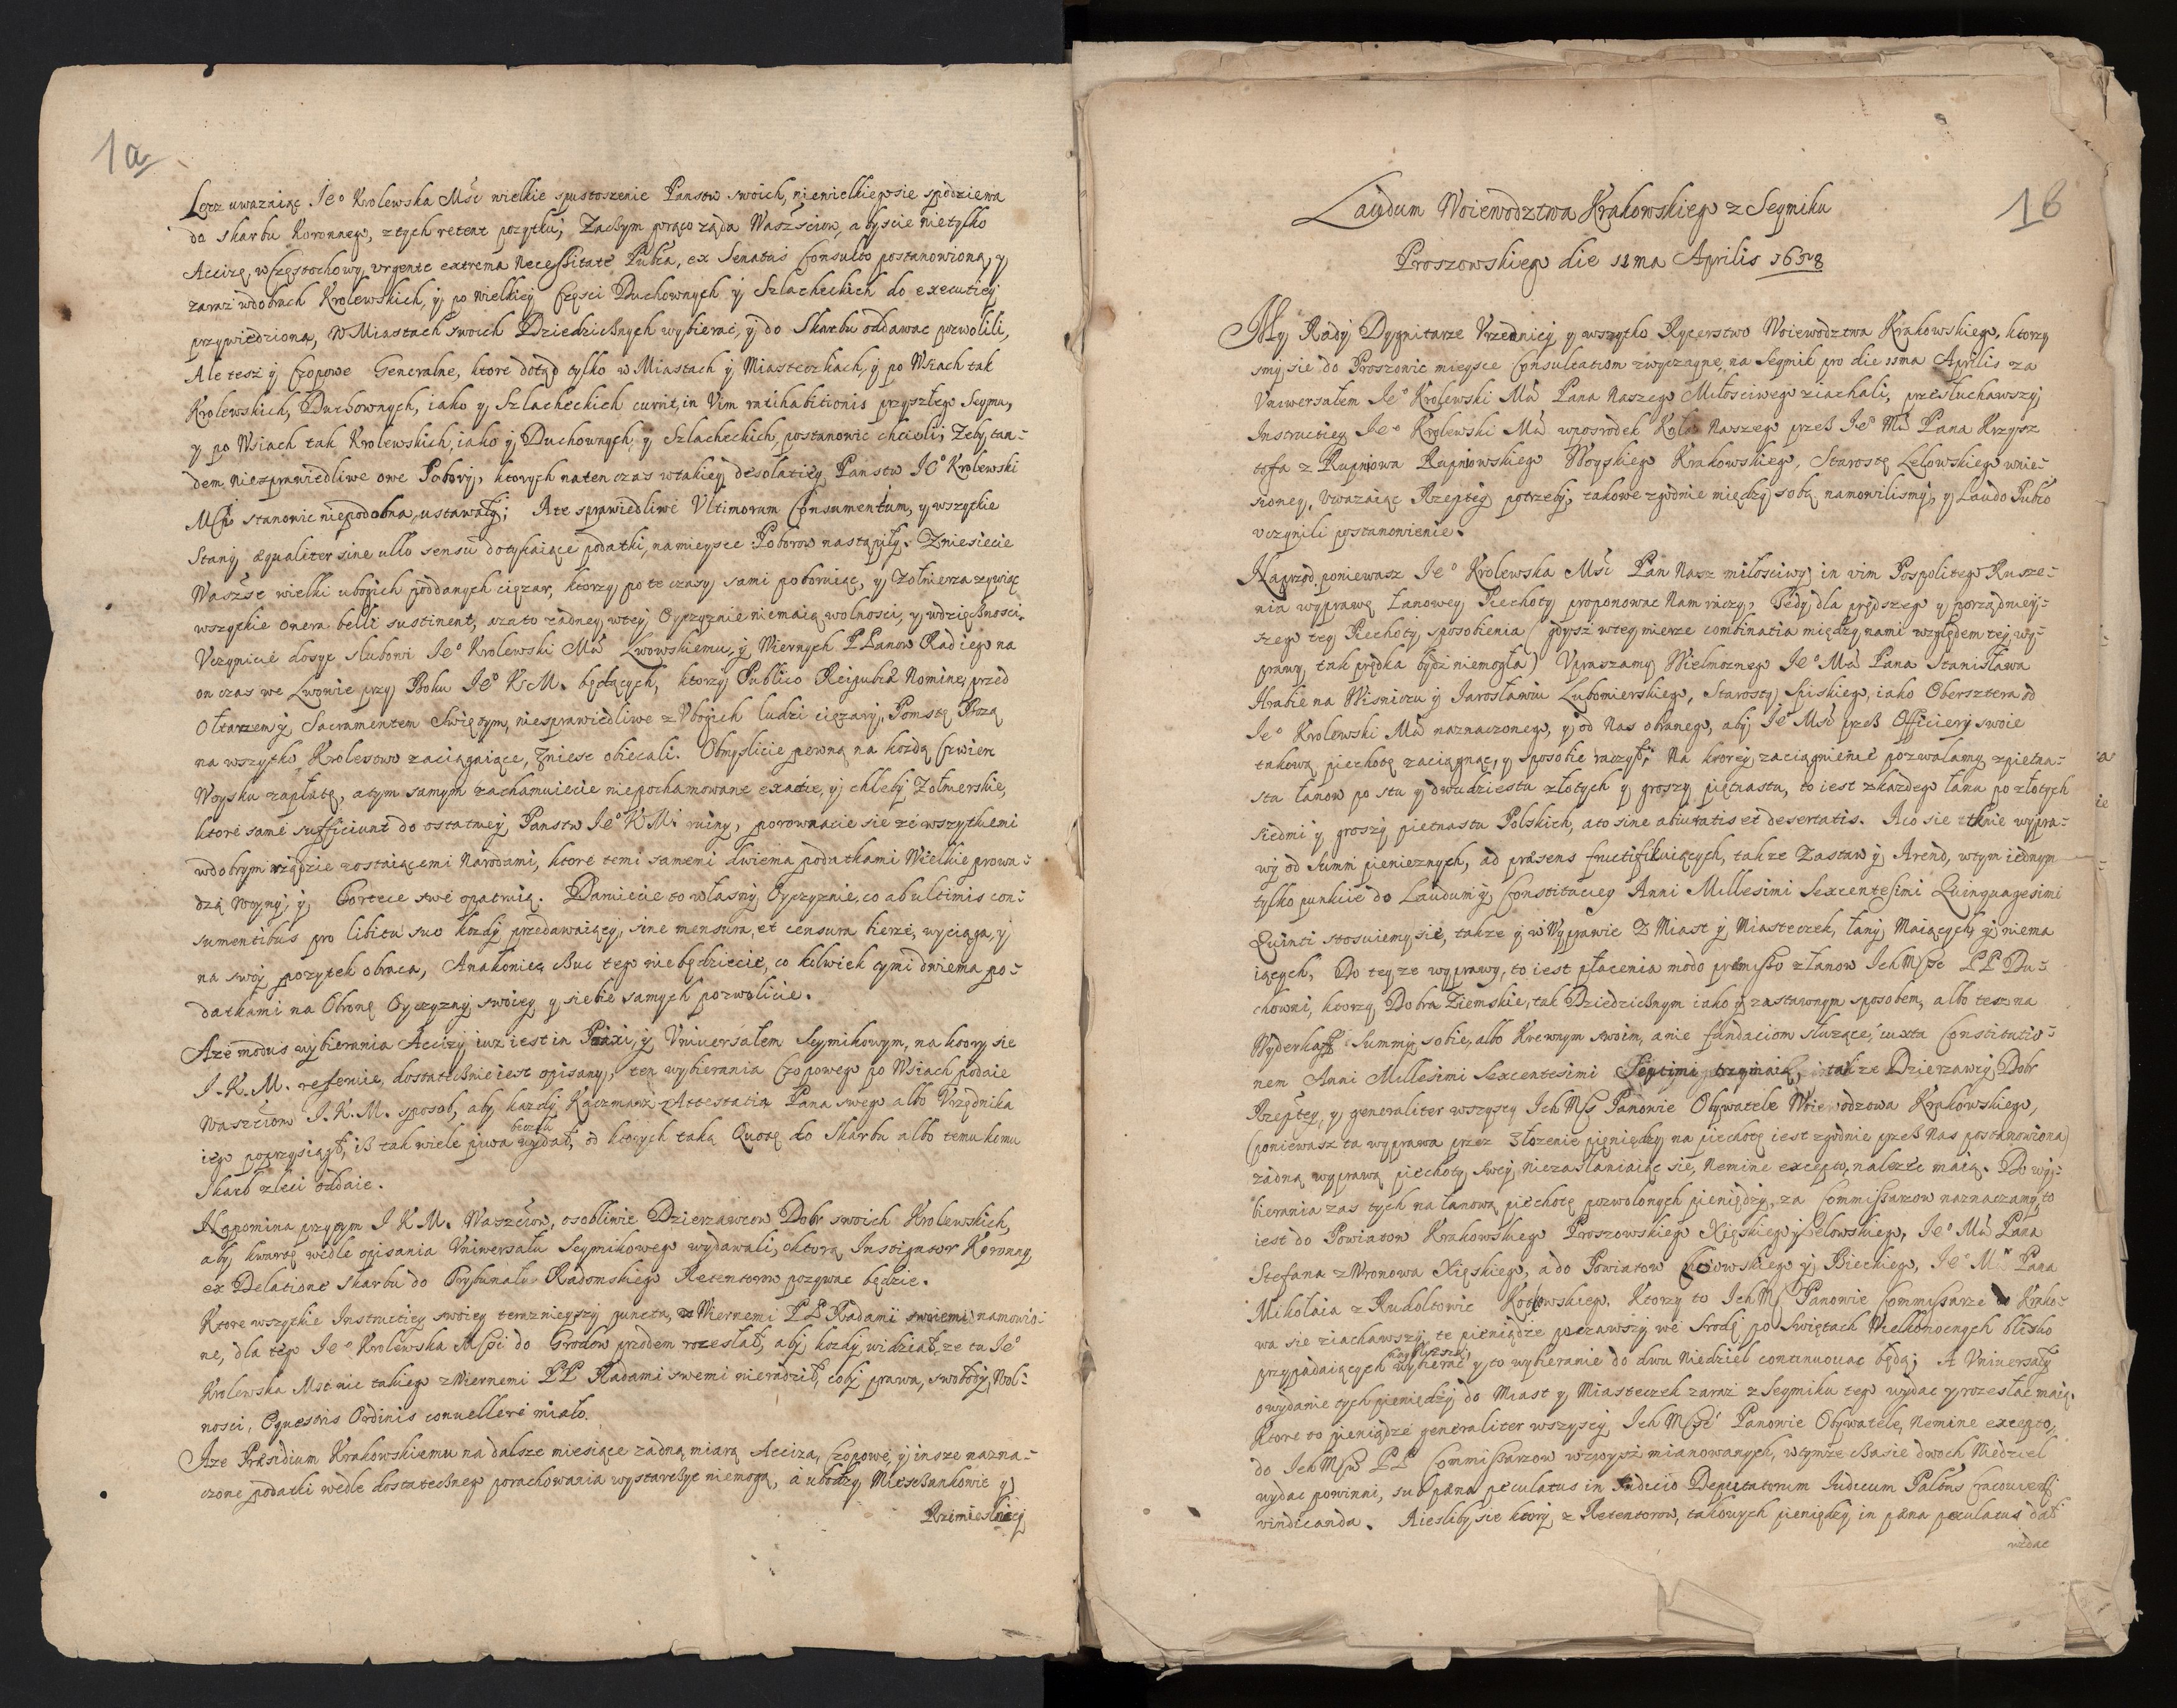 1a
Lecz uwazaiąc Je⁰ Krolewska Mść wielkie spustoszenie Panstw swoich, niewielkiego sie spodziewa
do skarbu Koronnego, z tych retent pozytku; Zaczym gorąco ząda Waszsciow, abyscie nie tylko
Accizę, w Częstochowy, urgente extrema Necessitate Publa, ex Senatus Consulto postanowioną, y
zaraz w dobrach Krolewskich, y po wielkiey Częsci Duchownych y Szlacheckich do executiey
przywiedzioną, w Miastach swoich Dziedzicznych wybierac, y do Skarbu oddawac pozwolili,
Ale tesz y Czopowe Generalne, ktore dotąd tylko w Miastach y Miasteczkach, y po Wsiach tak
Krolewskich, Duchownych, iako y Szlacheckich in Vim ratihabitionis przyszłego Seymu,
y po Wsiach tak Krolewskich, iako y Duchownych, y Szlacheckich, postanowic chcieli; Zeby tan-
dem niesprawiedliwe owe Pobory, ktorych na ten czas w takiey desolatiey Panstw Je⁰ Krolewski
Mści stanowic niepodobna, ustawały; A te sprawiedliwe Ultimorum Consumentum, y wszytkie
Stany æqualiter sine ullo sensu dotykaiące podatki, na mieysce Poborow nastąpiły. Zniesiecie
Waszsc wielki ubogich poddanych cięzar, ktorzy po te czasy sami poboruiąc, y Zołnierza zywiąc
wszytkie onera belli sustinent, a za to zadney w tey Oyczyznie nie maią wolnosci, y wdzięcznosci.
Uczynicie dosyc slubowi Je⁰ Krolewski Mći Lwowskiemu, y Wiernych PPanow Rad iego na
on czas we Lwowie przy Boku Je⁰ K. M. będących, ktorzy Publico Reipublæ Nomine, przed
Ołtarzem y Sacramentem Swiętym, niesprawiedliwe z Ubogich ludzi cięzary, Pomstę Bozą
na wszytko Krolestwo zaciągaiące, zniesc obiecali. Obmyslicie pewną na kozdą Cwierc
Woysku zapłatę, a tym samym zachamuiecie niepochamowane exactie, y chleby Zołnierskie,
ktore same sufficiunt do ostatniey Panstw Je⁰ K. Mći ruiny, porownacie sie ze wszytkiemi
w dobrym rządzie zostaiącemi Narodami, ktore temi samemi dwiema podatkami Wielkie prowa-
dzą Woyny, y Fortece swe opatruią. Darujecie to własny Oyczyznie, co ab ultimis con-
sumentibus pro libitu suo kozdy przedawaiący, sine mensura, et censura bierze, wyciąga, y
na swoy pozytek obraca, A nakoniec czuc tego nie będziecie, co kolwiek tymi dwiema po-
datkami na Obronę Oyczyzny swoiey y siebie samych pozwolicie.
A ze modus wybierania Accizy iuz iest in Praxi, y Universałem Seymikowym, na ktory sie
J. K. M. referuie, dostatecznie iest opisany, ten wybierania Czopowego po Wsiach podaie
Waszciom J. K. M. sposob, aby kazdy Kaczmarz z Attestatią Pana swego albo Urzędnika
iego poprzysiągł, isz tak wiele piwa beczek wydał, od ktorych taką Quotę do Skarbu albo temu komu
Skarb zleci oddaie.
Napomina przytym J K M. Waszciow, osobliwie Dzierzawcow Dobr swoich Krolewskich,
aby kwartę wedle opisania Uniwersału Seymikowego wydawali, o ktorą Instigator Koronny
ex Delatione Skarbu do Trybunału Radomskiego Retentorow pozywac będzie.
Ktore wszytkie Instructiey swoiey terazniejszy puncta, z Wiernemi PP Radami swoiemi namowio-
ne, dla tego Je⁰ Krolewska Mści do Grodow przodem rozesłał, aby kozdy widział, ze tu Je⁰
Krolewska Mść nic takiego z Wiernemi PP Radami swemi nie radził, coby prawa, swobody, Wol-
nosci, Equestris Ordinis convellere miało.
A ze Præsidium Krakowskiemu na dalsze miesiące zadną miarą Acciza, Czopowe, y insze nazna-
czone podatki wedle dostatecznego porachowania wystarczyc niemogą, a ubodzy Mieszczankowie y
Rzemieslnicy
1b
Laudum Woiewodztwa Krakowskiego z Seymiku
Proszowskiego die 11ma Aprilis 1658
My Rady Dygnitarze Urzednicy y wszytko Rycerstwo Woiewodztwa Krakowskiego, ktorzy
smy sie do Proszowic mieysce Consultatiom zwyczayne, na Seymik pro die 11ma Aprilis za
Uniwersałem Je⁰ Krolewski Mći Pana Naszego Miłosciwego ziachali, przesłuchawszy
Instructiey Je⁰ Krolewski Mći w posrodek Koła Naszego przez Je⁰ Mći Pana Krzysz
tofa z Rupniowa Rupniowskiego Woyskiego Krakowskiego, Starostę Lelowskiego wnie-
sioney, Uwazaiąc Rzeptey potrzeby, takowe zgodnie między sobą namowilismy, y Laudo Publo
uczynili postanowienie.
Naprzod poniewasz Je⁰ Krolewska Mść Pan Nasz miłosciwy in vim Pospolitego Rusze-
nia wyprawę Łanowey Piechoty proponowac Nam raczy, Tedy dla prędszego y porządniey-
szego tey Piechoty sposobienia (gdysz w tey mierze combinatia między nami względem tey wy-
prawy, tak prędka bydz niemogła) Upraszamy Wielmoznego Je⁰ Mći Pana Stanisława
Hrabie na Wisniczu y Jarosławiu Lubomierskiego, Starosty Spiskiego, iako Obersztera od
Je⁰ Krolewski Mći naznaczonego, y od Nas obranego, aby Je⁰ Mść przez Officiery swoie
takową piechotę zaciągnąc, y sposobic raczył; Na ktorey zaciągnienie pozwalamy z pietna-
stu łanow po stu y dwudziestu złotych y groszy piętnastu, to iest z kazdego łanu po złotych
siedmi y groszy pietnastu Polskich, a to sine abiuratis et desertatis. A co sie tknie wypra-
wy od Summ pienieznych, ad præsens fructifikuiących, takze Zastaw y Arend, w tym iednym
tylko punkcie do Laudum y Constitutiey Anni Millesimi Sexcentesimi Quinquagesimi
Quinti stosuiemy sie, takze y w Wyprawie Z Miast y Miasteczek, łany Maiących, y niema
iących, Do teyze wyprawy, to iest płacenia modo præmisso z łanow Ich Mść PP Du-
chowni, ktorzy Dobra Ziemskie, tak Dziedzicznym iako y zastawnym sposobem, albo tesz na
Wyderkaff Summy sobie, albo Krewnym swoim, a nie fundaciom słuzące, iuxta Constitutio-
nem Anni Millesimi Sexcentesimi Septimi trzymaią, takze Dzierzawcy Dobr
Rzeptey, y generaliter wszyscy Ich Mść Panowie Obywatele Woiewodztwa Krakowskiego,
(poniewasz ta wyprawa przez złozenie pieniędzy na piechotę iest zgodnie przez Nas postanowiona)
zadną wyprawą piechoty swey niezasłaniaiąc sie, Nemine excepto, nalezec maią. Do wy-
bierania zas tych na łanową piechotę pozwolonych pieniędzy, za Commissarzow naznaczamy, to
iest do Powiatow Krakowskiego Proszowskiego Xięskiego y Lelowskiego, Je⁰ Mći Pana
Stefana z Wronowa Xięskiego, a do Powiatow Czchowskiego y Bieckiego, Je⁰ Mći Pana
Mikołaia z Rudoltowic Kotkowskiego. Ktorzy to Ich Mść Panowie Commissarze do Krako-
wa sie ziachawszy, te pieniądze poczawszy we Srodę po Swiętach Wielkonocnych blisko
przypadaiących wybierac y to wybieranie do dwu Niedziel continuowac będą; A Uniwersały
o wydanie tych pieniędzy do Miast y Miasteczek zaraz z Seymiku tego wydac y rozesłac maią.
Ktore to pieniądze generaliter wszyscy Ich Mść Panowie Obywatele, Nemine excepto,
do Ich Mść PP Commissarzow wzwysz mianowanych, w tymze czasie dwoch Niedziel
wydac powinni, sub pæna peculatus in Judicio Deputatorum Judicum Palatus Cracovien
vindicanda. A iesliby sie ktory z Retentorow, takowych pieniędzy in pæna peculatus dał
wzdac